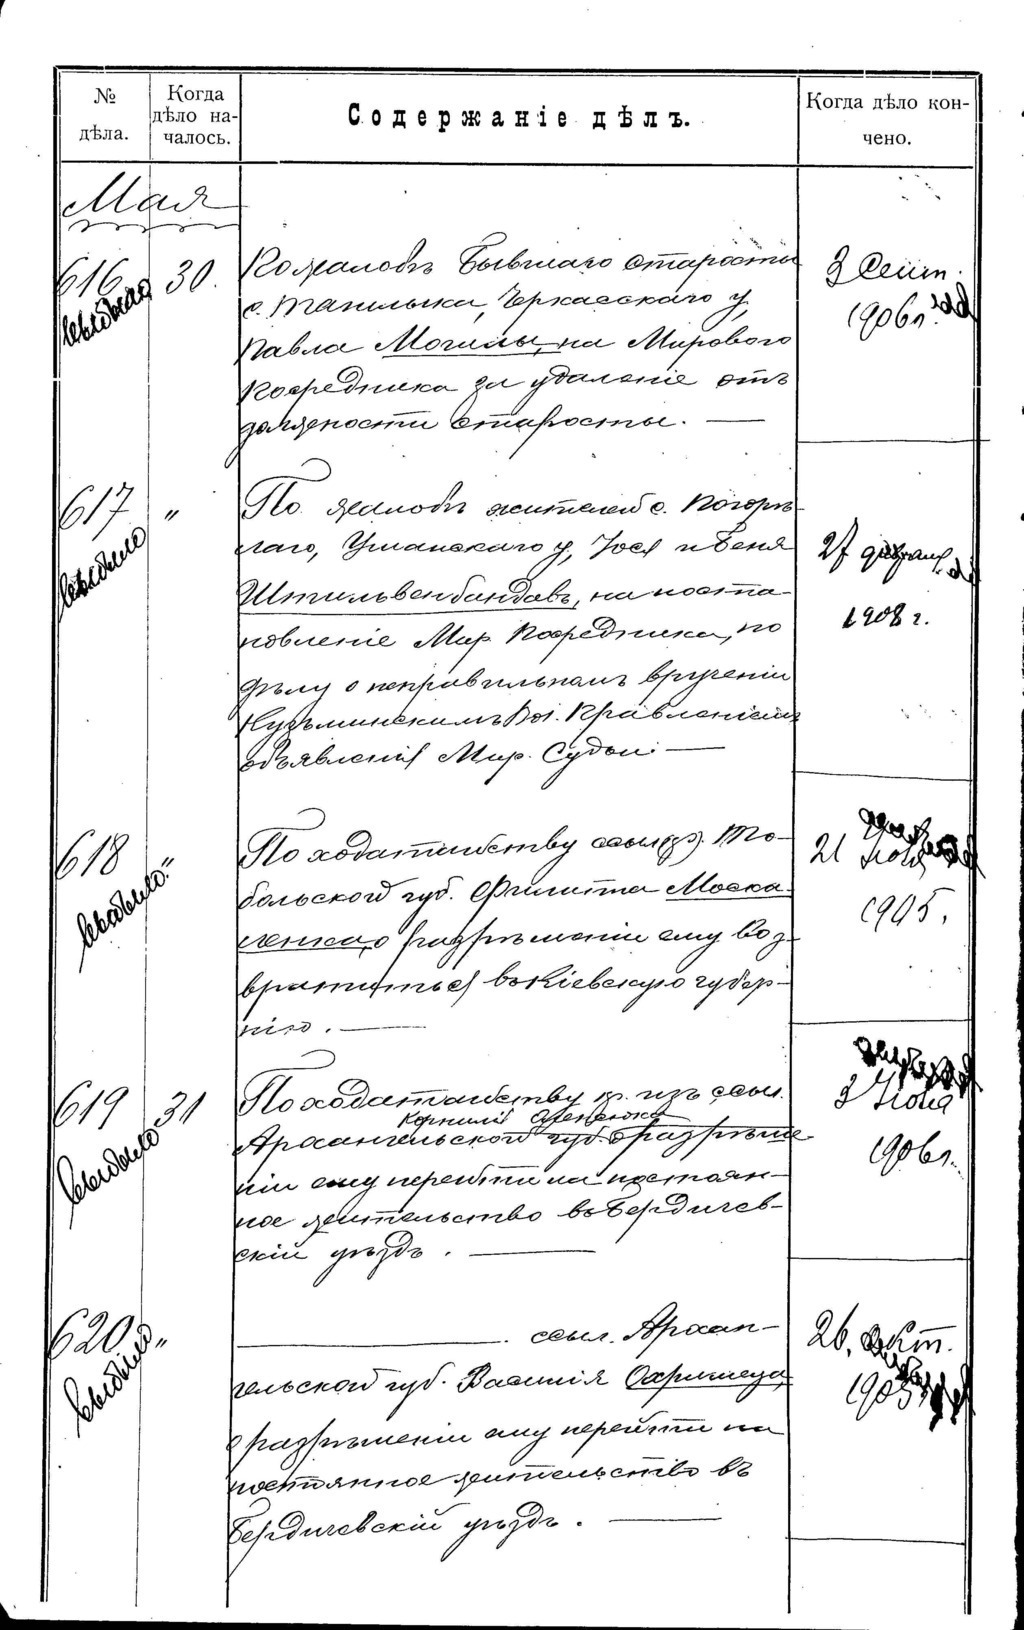 № дѣла.
Когда дѣло началось.
Содержаніе дѣлъ.
Когда дѣло кончено.
Мая
616
30.
По жалобѣ бывшаго старосты
с. Топильно, Черкасскаго у.
Павла Могилы, на Мирового
Посредника за удаленіе отъ
должности старосты. —
3 Сент.
1906 г.
617
"
По жалобѣ жителей с. Погорѣ-
лаго, Уманскаго у, Іося и Беня
Штильвенбандовъ, на поста-
новленіе Мир. Посредника, по
дѣлу о неправильномъ врученіи
Кузьминскимъ Вол. Правленіемъ
объявленія Мир. Судьи. —
27 февраля
1908 г.
618
"
По ходатайству ссыл. То-
больской губ. Филиппа Моска-
ленка, о разрѣшеніи ему воз-
вратиться въ Кіевскую губер-
нію. —
21 Іюля
1905.
619
31
По ходатайству кр. изъ ссыл.
Корнилія
Архангельской губ. о разрѣше-
ніи ему перейти на постоян-
ное жительство въ Бердичев-
скій уѣздъ. —
3 Іюля
1906 г.
620
"
— ссыл. Архан-
гельской губ. Василія Охримеца,
о разрѣшеніи ему перейти на
постоянное жительство въ
Бердичевскій уѣздъ. —
26, окт.
1905